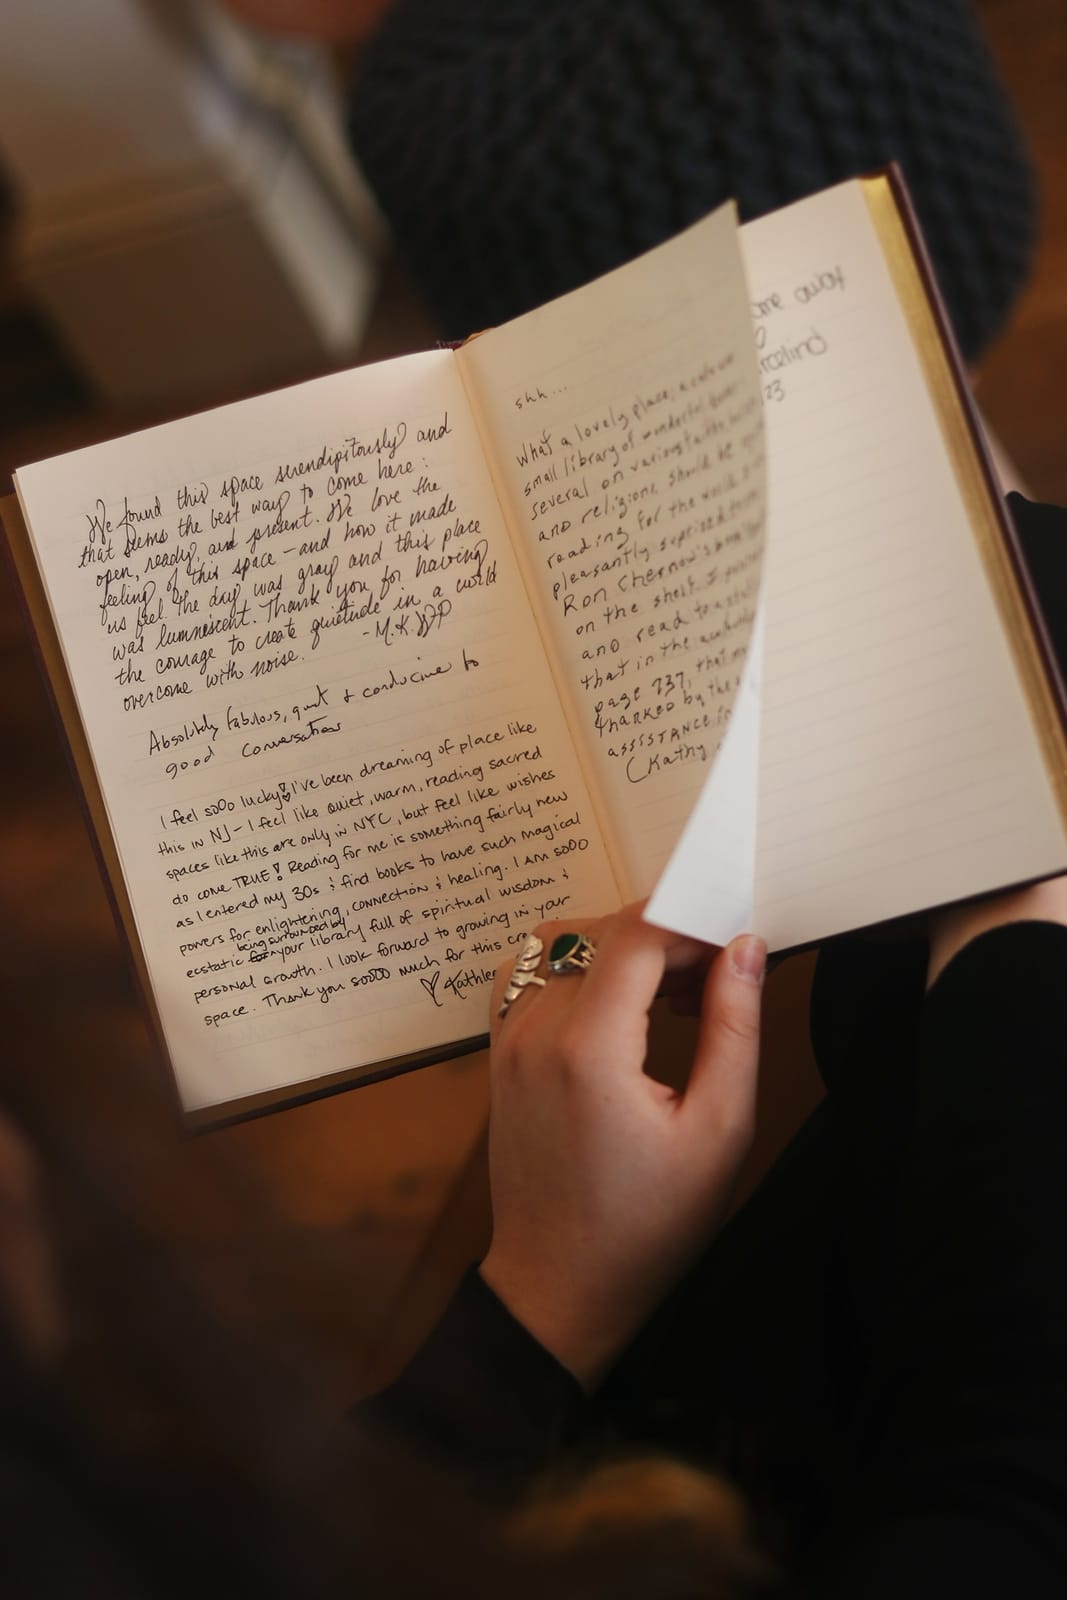 We found this space serendipitously and
that seems the best way to come here:
open, ready, and present. We love the
feeling of this space – and how it made
us feel. The day was gray and this place
was luminescent. Thank you for having
the courage to create quietude in a world
overcome with noise.
- M.K.
Absolutely fabulous, quiet & conducive to
good conversation
I feel soOo lucky! I've been dreaming of place like
this in NJ – I feel like quiet, warm, reading sacred
spaces like this are only in NYC, but feel like wishes
do come TRUE! Reading for me is something fairly new
as I entered my 30s & find books to have such magical
powers for enlightening, connection & healing. I AM soOO
being surrounded by
ecstatic for your library full of spiritual wisdom &
personal growth. I look forward to growing in your
space. Thank you soOOO much for this
♡ Kathle
shh...
What a lovely place; a
small library of wonderful
several on various
and religions, should be
reading for the world.
pleasantly suprised
Ron Chernow's
on the shelf. I
and read to a
that in the
page 737, that
thanked by the
assistance in
(Kathy
me away
23